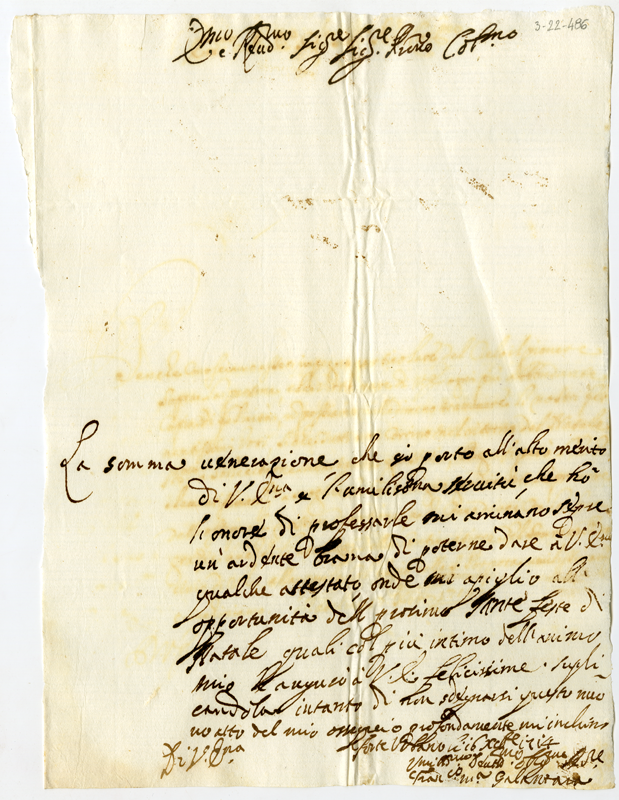 3-22-486
Emo e Rmo Sigre Sigre Prone Colmo
La somma venerazione che io porto all'alto merito
di V. Ema e l'umilissima servitù che hò
l'onore di professarle mi animano sepre
un'ardente brama di poterne dare à V. Ema
qualche attestato, onde mi apiglio alla
opportunità dell prossime Sante feste di
Natale quali col più intimo dell'animo
mio l'auguro à V. E. felicissime supli
candola intanto di non sdegnarsi questo nuo
uo atto del mio ossequio profondamente mi inchino
Di V. Ema
Forte Urbano li 16 Xbre
Galantara